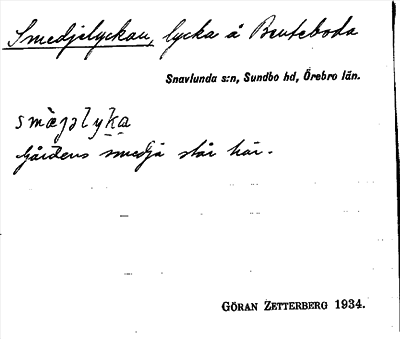 Smedjelyckan, lycka å Bruteboda
Snavlunda s:n, Sundbo hd, Örebro län.
smæjəlyka
Gårdens smedja står här.
GÖRAN ZETTERBERG 1934.